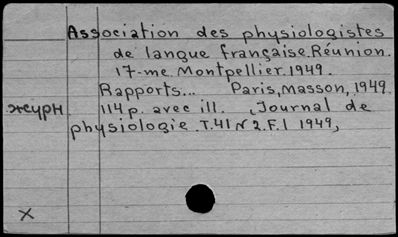 Association des physiologistes
de langue française. Réunion.
17-me. Montpellier. 1949.
Rapports... Paris, Masson, 1949.
журн 114 p. avec ill. (Journal de
physiologie. T.41 № 2. F.1 1949,
X